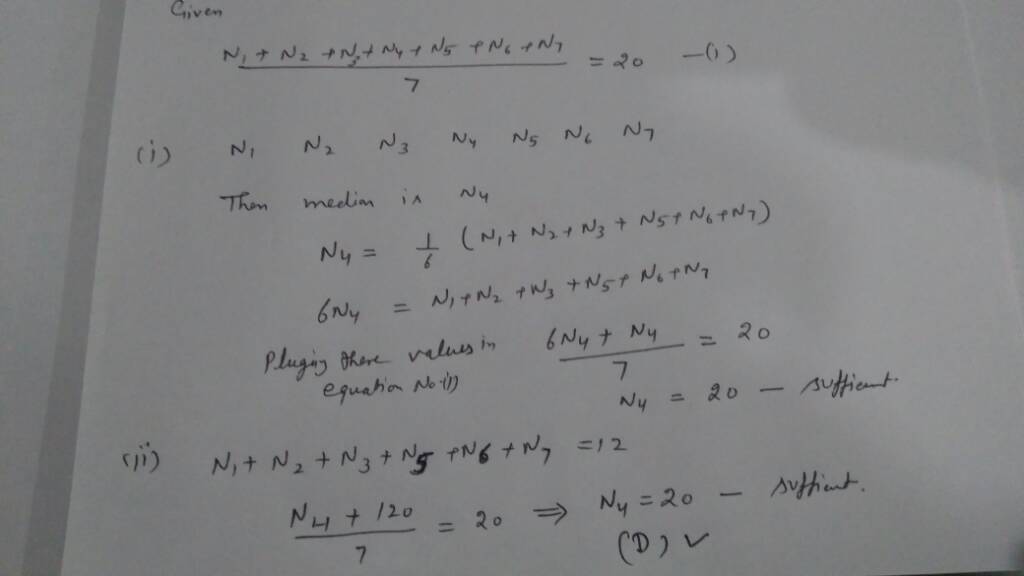 Given
N1 + N2 + N3 + N4 + N5 + N6 + N7 / 7 = 20 —(1)
(i) N1 N2 N3 N4 N5 N6 N7
Then median is N4
N4 = 1/6 (N1 + N2 + N3 + N5 + N6 + N7)
6N4 = N1 + N2 + N3 + N5 + N6 + N7
Pluging there values in
equation No.(1)
6N4 + N4 / 7 = 20
N4 = 20 — sufficient.
(ii) N1 + N2 + N3 + N5 + N6 + N7 = 12
N4 + 120 / 7 = 20 ⇒ N4 = 20 — sufficient.
(D) ✓